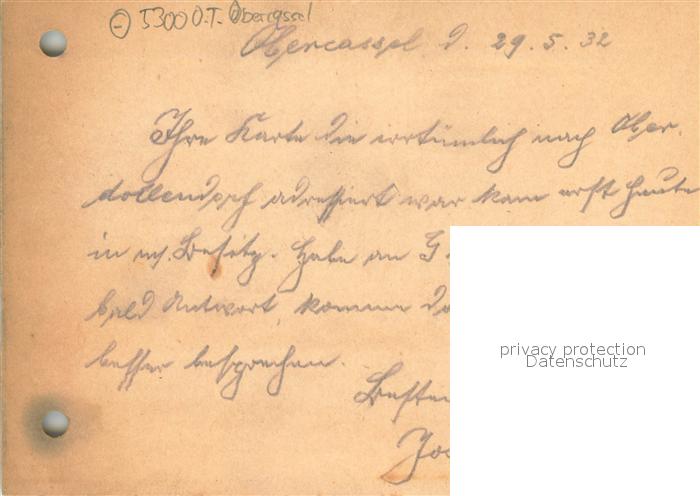 5300 O.T. Obercassel
Obercassel d. 29.5.32
Ihre Karte die irrtümlich nach Ober-
dollendorf adressiert war kam erst heute
in m. Besitz. Habe an G
bald Antwort, komme
besser besprechen.
Besten
privacy protection
Datenschutz